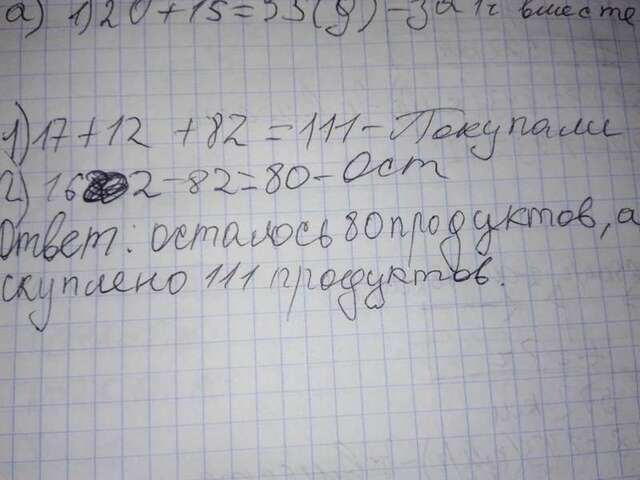 а) 1) 20+15=35(д)-за 1ч вместе
1) 17+12 +82=111-Покупали
2) 162-82=80-Ост
Ответ: осталось 80 продуктов, а
скуплено 111 продуктов.